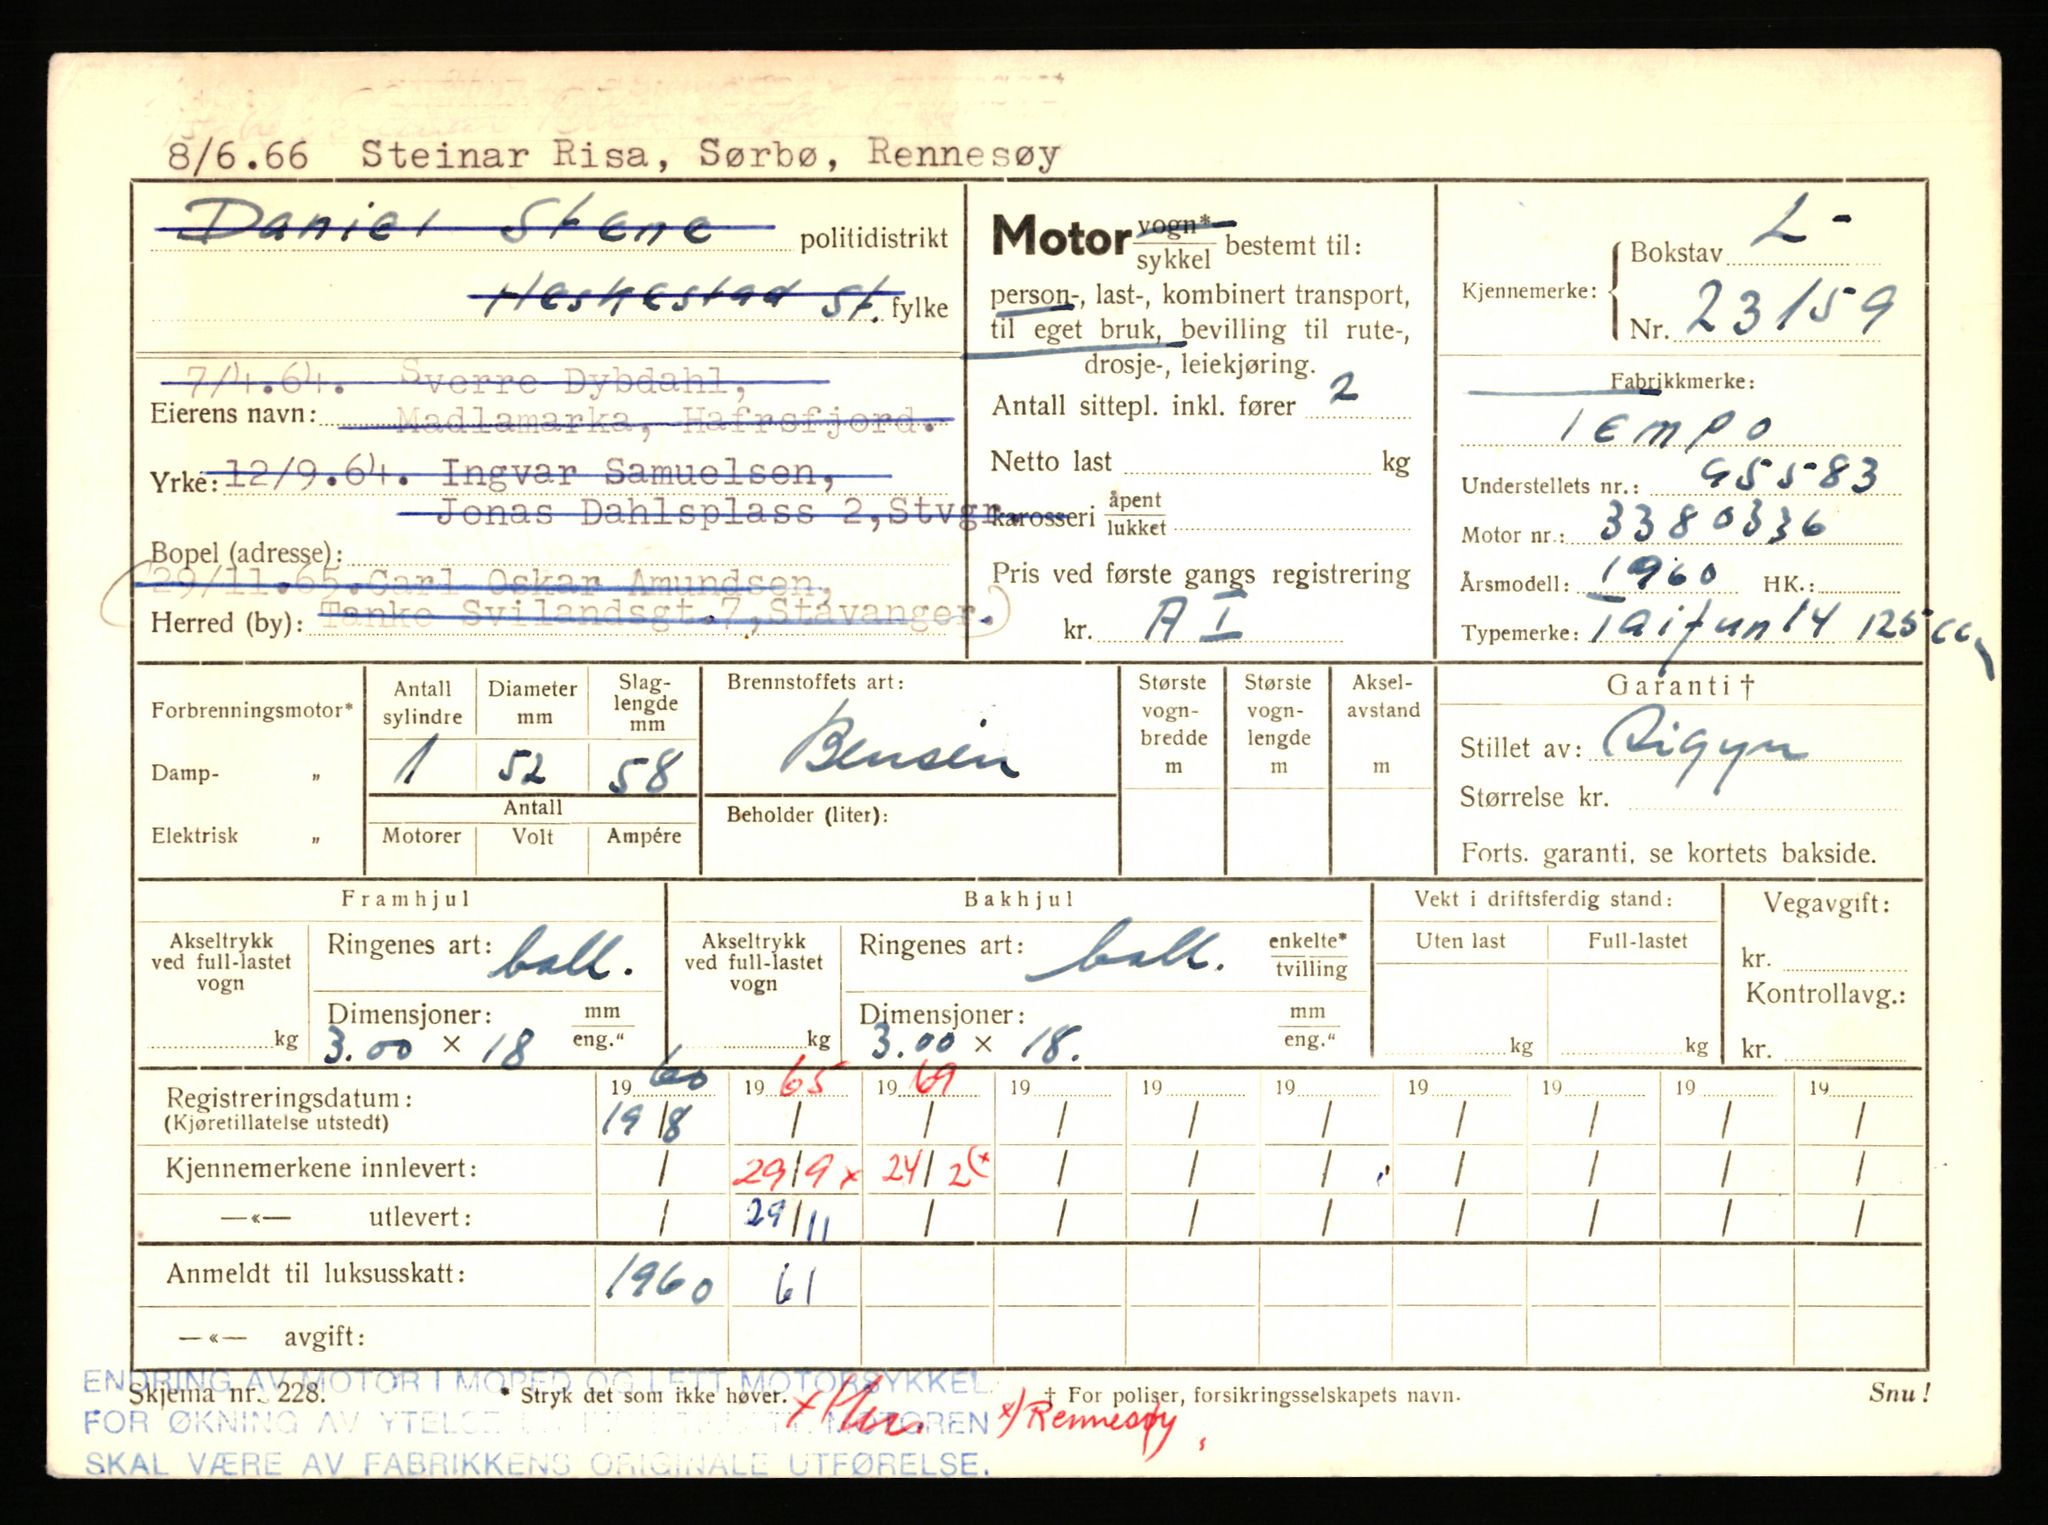 8/6.66 Steinar Risa, Sørbø, Rennesøy
Daniel Stene politidistrikt
Heskestad St. fylke
7/4.64. Sverre Dybdahl,
Eierens navn: Madlamarka, Hafrsfjord.
Yrke: 12/9.64. Ingvar Samuelsen,
Jonas Dahlsplass 2, Stvgr.
Bopel (adresse):
29/11.65. Carl Oskar Amundsen,
Herred (by): Tanke Svilandsgt. 7, Stavanger.
Motor vogn* / sykkel bestemt til:
person-, last-, kombinert transport,
til eget bruk, bevilling til rute-,
drosje-, leiekjøring.
Antall sittepl. inkl. fører 2
Netto last kg
karosseri åpent / lukket
Pris ved første gangs registrering
kr. A I
Kjennemerke: Bokstav L-
Nr. 23159
Fabrikkmerke:
Tempo
Understellets nr.: 95583
Motor nr.: 3380336
Årsmodell: 1960 HK.:
Typemerke: Taifun 14 125 cc
Forbrenningsmotor*
Damp- „
Elektrisk „
Antall sylindre 1
Diameter mm 52
Slaglengde mm 58
Antall
Motorer Volt Ampére
Brennstoffets art:
Bensin
Beholder (liter):
Største vogn-bredde m
Største vogn-lengde m
Aksel-avstand m
Garanti †
Stillet av: Sigyn
Størrelse kr.
Forts. garanti, se kortets bakside.
Framhjul
Akseltrykk ved full-lastet vogn kg
Ringenes art: ball.
Dimensjoner: mm / eng."
3.00 × 18
Bakhjul
Akseltrykk ved full-lastet vogn kg
Ringenes art: ball. enkelte* / tvilling
Dimensjoner: mm / eng."
3.00 × 18.
Vekt i driftsferdig stand:
Uten last Full-lastet
kg kg
Vegavgift:
kr.
Kontrollavg.:
kr.
19 60 19 65 19 69 19 19 19 19 19 19
Registreringsdatum: 19/8 / / / / / / / / /
(Kjøretillatelse utstedt)
Kjennemerkene innlevert: / 29/9 x 24/2 (x / / / / / / /
—«— utlevert: / 29/11 / / / / / / / /
Anmeldt til luksusskatt: 1960 61
—«— avgift:
ENDRING AV MOTOR I MOPED OG LETT MOTORSYKKEL
Skjema nr. 228. * Stryk det som ikke høver. † For poliser, forsikringsselskapets navn. Snu!
FOR ØKNING AV YTELSE MOTOREN
x) Rennesøy
SKAL VÆRE AV FABRIKKENS ORIGINALE UTFØRELSE.